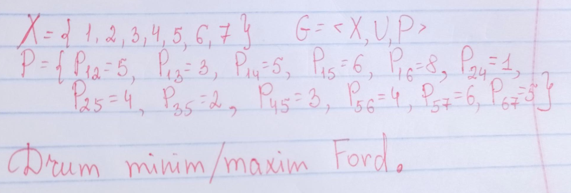 X = { 1, 2, 3, 4, 5, 6, 7 } G = < X, U, P >
P = { P12 = 5, P13 = 3, P14 = 5, P15 = 6, P16 = 8, P24 = 1,
P25 = 4, P35 = 2, P45 = 3, P56 = 4, P57 = 6, P67 = 3 }
Drum minim/maxim Ford.